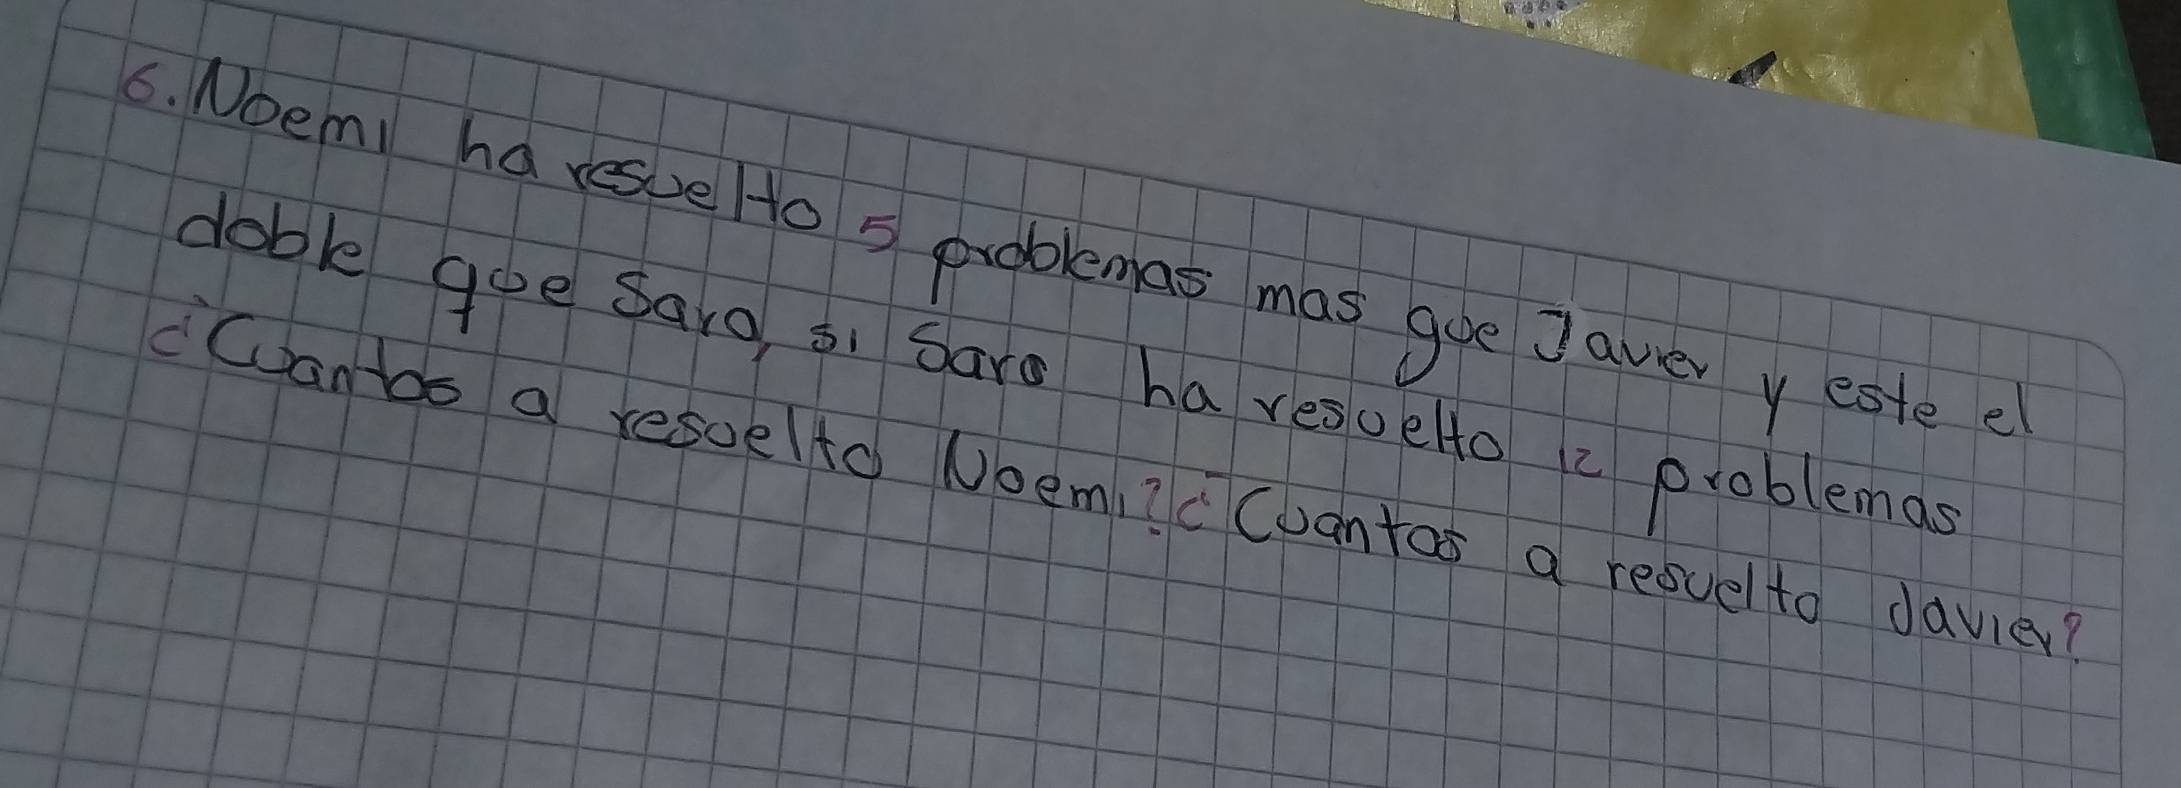 6. Noemi ha resuelto 5 problemas mas que Javier y este el
doble que Sara, si Sara ha resuelto 12 problemas
¿Cuantos a resuelto Noemi? ¿Cuantos a resuelto Javier?